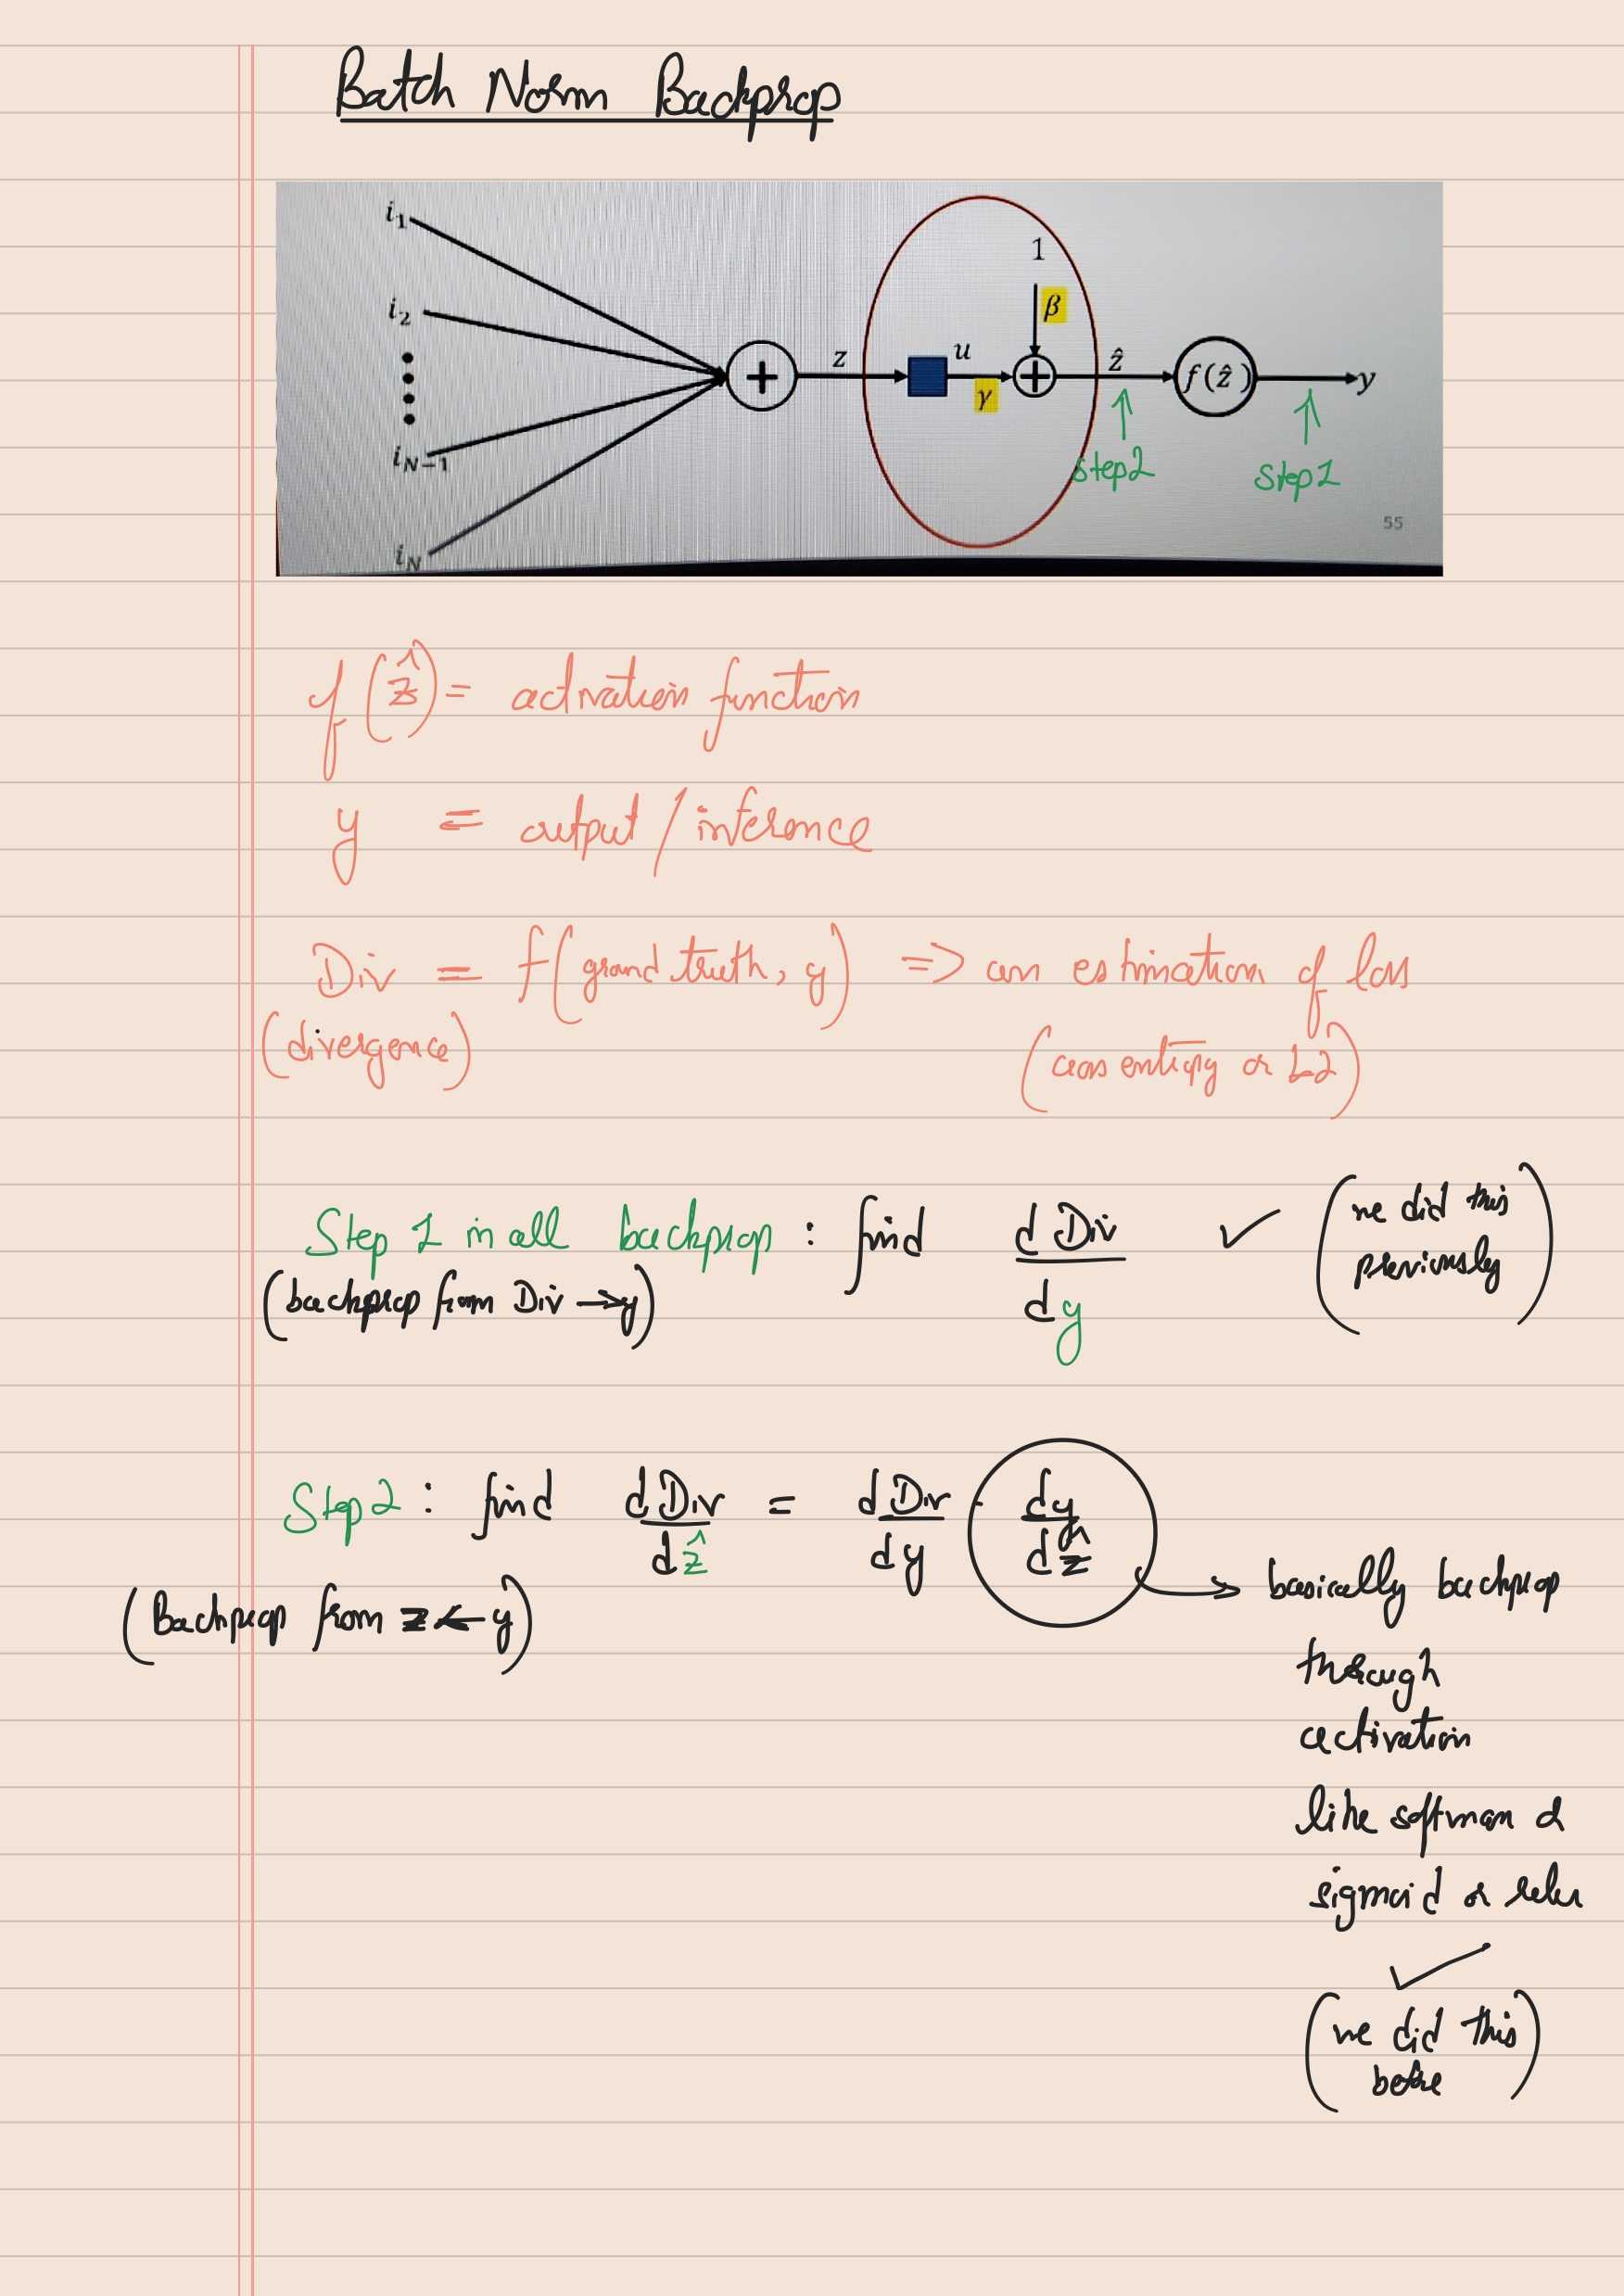 Batch Norm Backprop
i₁
1
i₂
β
z
u
ẑ
f(ẑ)
y
γ
i_{N-1}
step2
step1
55
i_N
f(ẑ) = activation function
y = output / inference
Div = f(ground truth, y) => an estimation of loss
(divergence)
(cross entropy or L2)
Step 1 in all backprop : find dDiv/dy ✓ (we did this previously)
(backprop from Div → y)
Step 2 : find dDiv/dẑ = dDiv/dy · dy/dẑ
→ basically backprop
(Backprop from z ← y)
through
activation
like softmax &
sigmoid or relu
✓
(we did this
before)